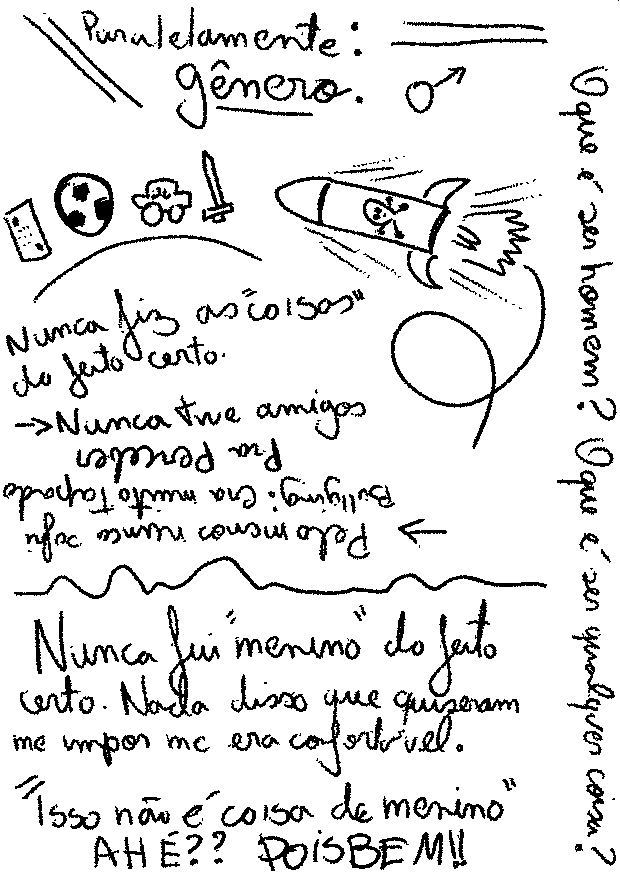 Paralelamente:
gênero.
Nunca fiz as "coisas"
do jeito certo.
→Nunca tive amigos
→ Pelo menos nunca sofri
Bullying: era muito tapado
pra perceber
Nunca fui "menino" do jeito
certo. Nada disso que quiseram
me impor me era cofortável.
"Isso não é coisa de menino"
AH É?? POIS BEM!!
O que é ser homem? O que é ser qualquer coisa?